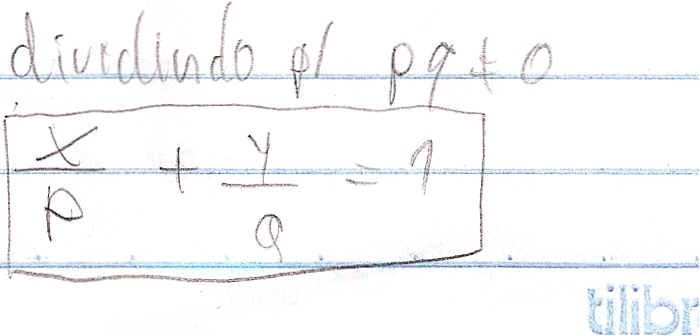 dividindo p/ pq ≠ 0
x/p + y/q = 1
tilibr